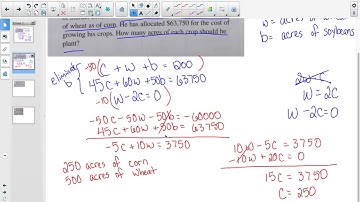 of wheat as of corn. He has allocated $63,750 for the cost of
growing his crops. How many acres of each crop should he
plant?
w = acres of
b = acres of soybeans
eliminate
b
-50(C + w + b = 1200)
45c + 60w + 50b = 63750
-10(w - 2c = 0)
w = 2c
w - 2c = 0
-50c - 50w - 50b = -60000
45c + 60w + 50b = 63750
-5c + 10w = 3750
250 acres of corn
500 acres of wheat
10w - 5c = 3750
-10w + 20c = 0
15c = 3750
c = 250